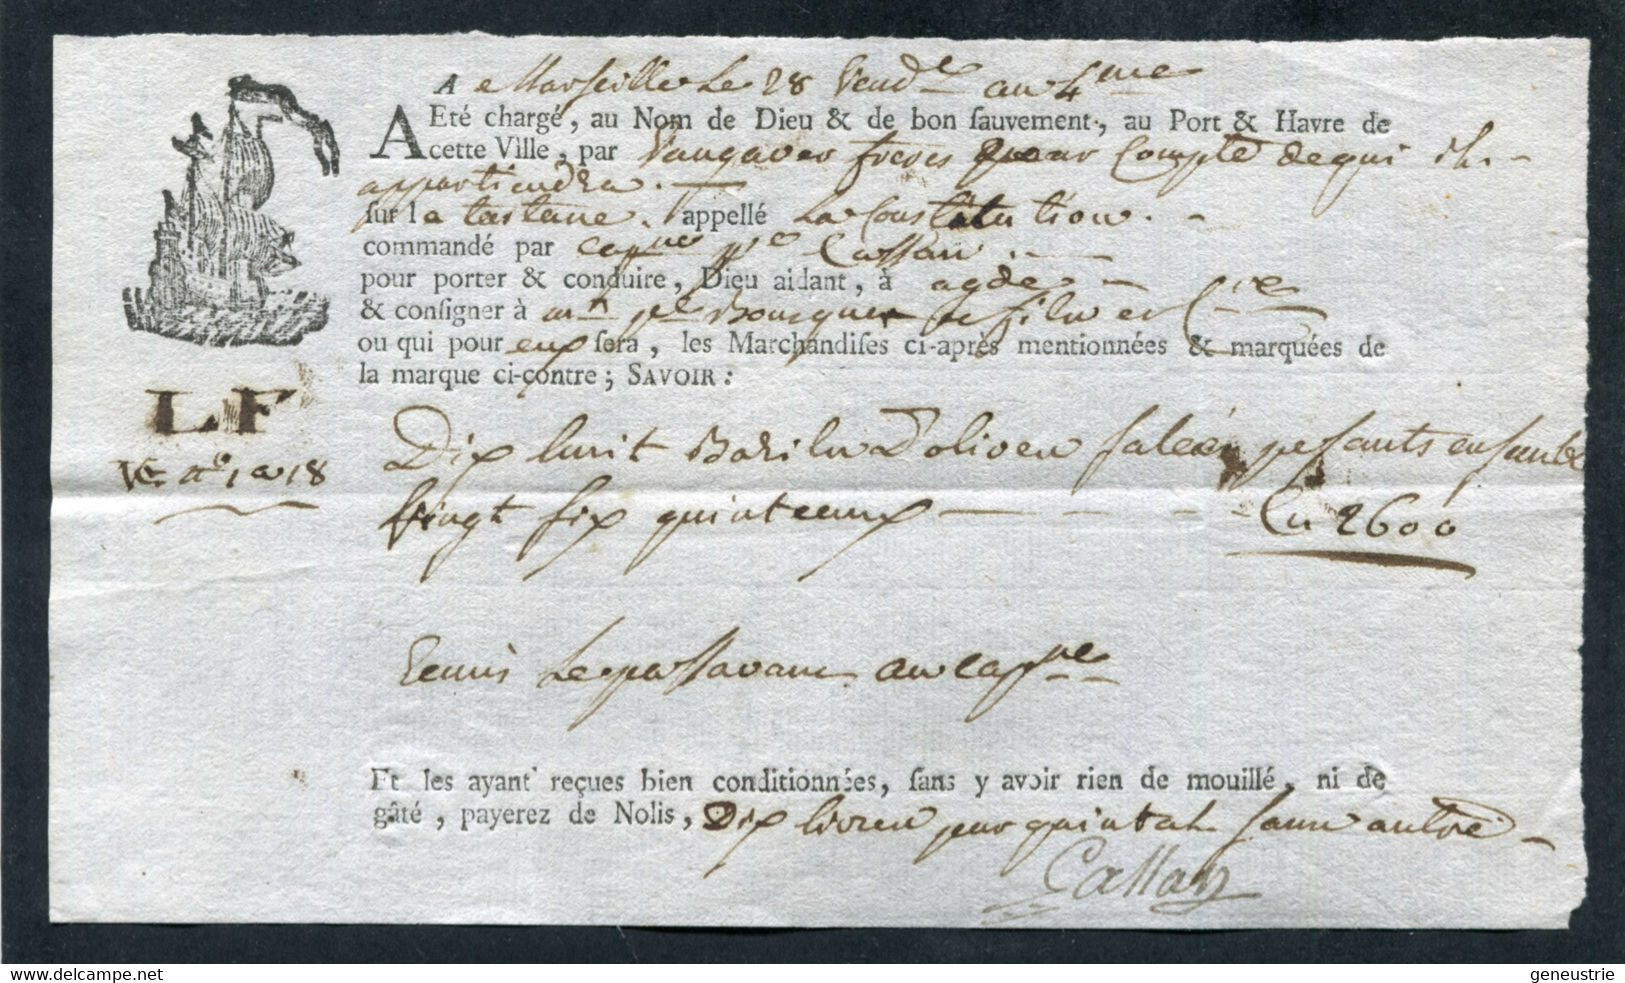 A Marseille Le 28 Vend.re an 4.me
A Eté chargé, au Nom de Dieu & de bon sauvement, au Port & Havre de
cette Ville, par Vangaver freres pour Compte de qui il
appartiendra.
sur la tartane. appellé La Constitution.
commandé par Cap.ne p.re Cassan.
pour porter & conduire, Dieu aidant, à agde
& consigner à p.re Bousquet fils et C.ie
ou qui pour eux sera, les Marchandises ci-après mentionnées & marquées de
la marque ci-contre; SAVOIR:
LF
n.o 1 a 18
Dix huit Barils D'olives salées pesants ensemble
vingt six quinteaux — 2600
remis Le passavant au cap.ne
Et les ayant reçues bien conditionnées, sans y avoir rien de mouillé, ni de
gâté, payerez de Nolis, Dix livres par quintal sans autre
Cassan
www.delcampe.net
geneustrie